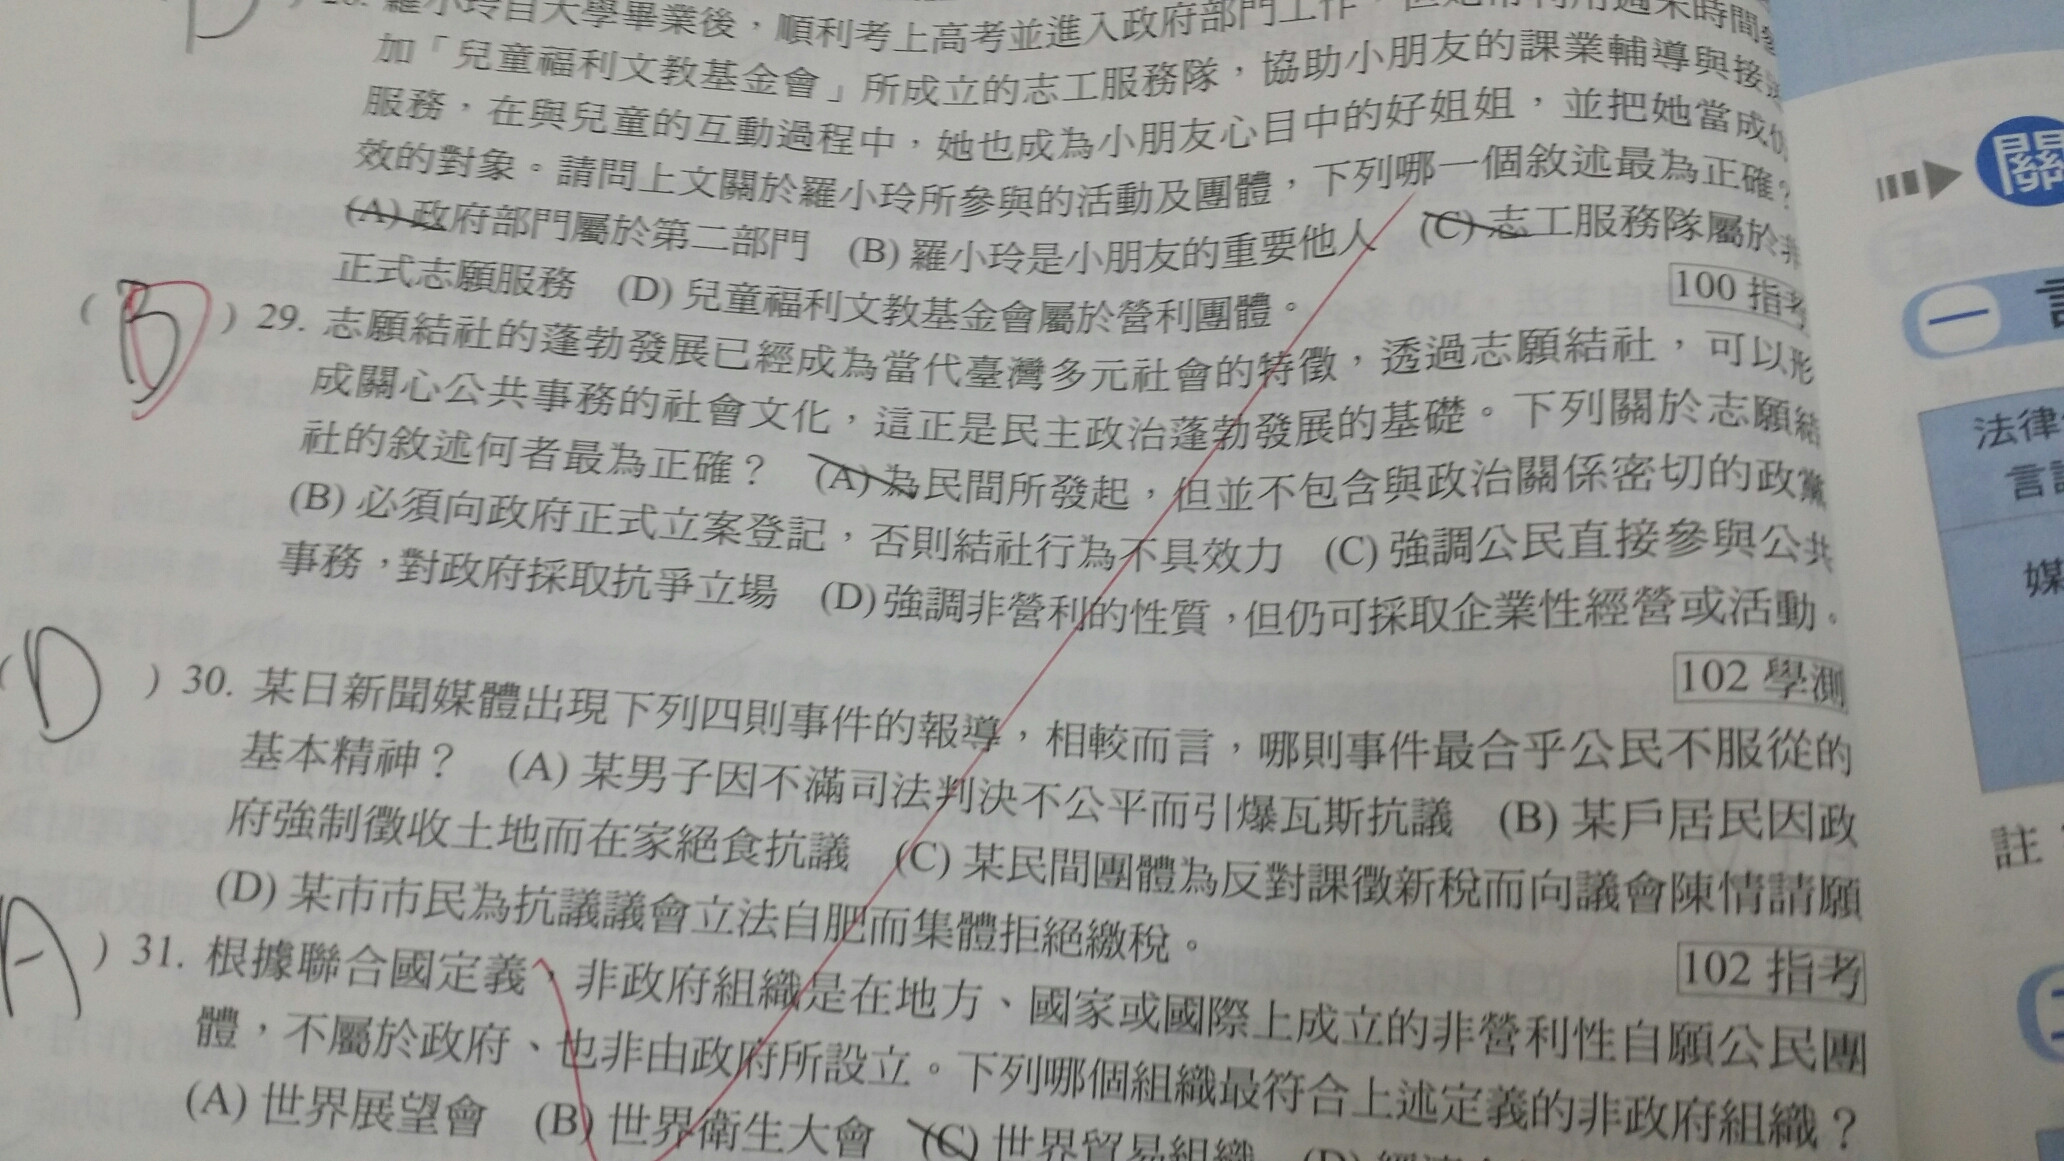 28. 羅小玲自大學畢業後，順利考上高考並進入政府部門工作，但她常利用週末時間
加「兒童福利文教基金會」所成立的志工服務隊，協助小朋友的課業輔導與接
服務，在與兒童的互動過程中，她也成為小朋友心目中的好姐姐，並把她當成
效的對象。請問上文關於羅小玲所參與的活動及團體，下列哪一個敘述最為正確？
(A) 政府部門屬於第二部門 (B) 羅小玲是小朋友的重要他人 (C) 志工服務隊屬於非
正式志願服務 (D) 兒童福利文教基金會屬於營利團體。
100 指考
( B ) 29. 志願結社的蓬勃發展已經成為當代臺灣多元社會的特徵，透過志願結社，可以形
成關心公共事務的社會文化，這正是民主政治蓬勃發展的基礎。下列關於志願結
社的敘述何者最為正確？ (A) 為民間所發起，但並不包含與政治關係密切的政黨
(B) 必須向政府正式立案登記，否則結社行為不具效力 (C) 強調公民直接參與公共
事務，對政府採取抗爭立場 (D) 強調非營利的性質，但仍可採取企業性經營或活動。
102 學測
( D ) 30. 某日新聞媒體出現下列四則事件的報導，相較而言，哪則事件最合乎公民不服從的
基本精神？ (A) 某男子因不滿司法判決不公平而引爆瓦斯抗議 (B) 某戶居民因政
府強制徵收土地而在家絕食抗議 (C) 某民間團體為反對課徵新稅而向議會陳情請願
(D) 某市市民為抗議議會立法自肥而集體拒絕繳稅。
102 指考
A ) 31. 根據聯合國定義，非政府組織是在地方、國家或國際上成立的非營利性自願公民團
體，不屬於政府、也非由政府所設立。下列哪個組織最符合上述定義的非政府組織？
(A) 世界展望會 (B) 世界衛生大會 (C) 世界貿易組織 (D)
關
一
法律
言
媒
註